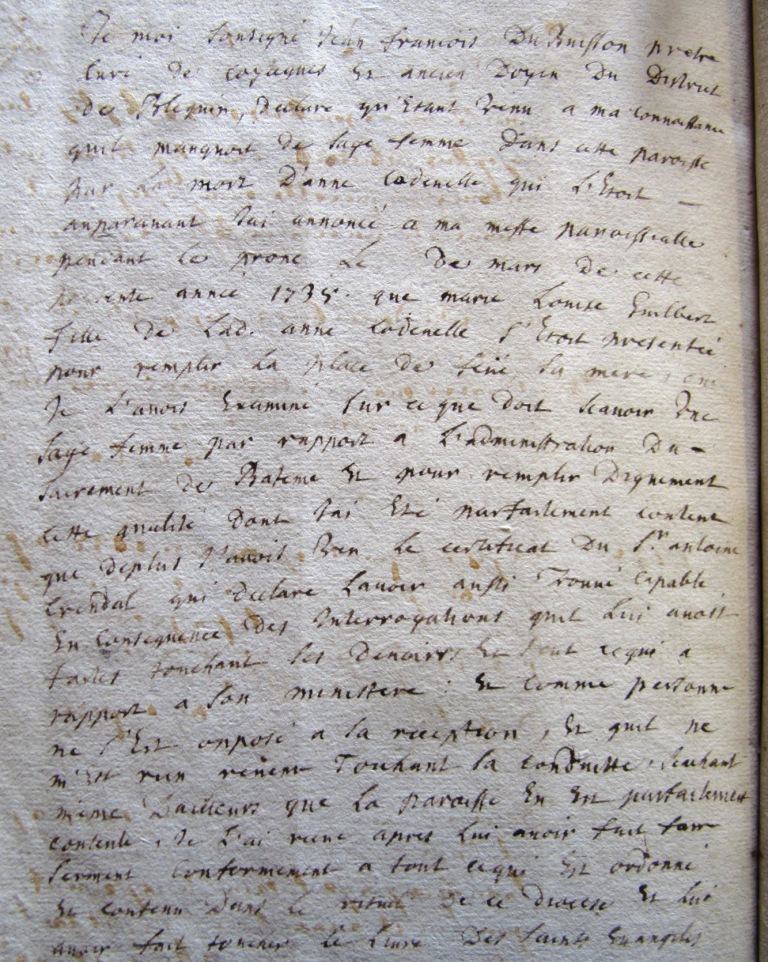 Je moi soussigné Jean francois DuBuisson pretre
Curé de coyecques et ancien Doyen Du District
De Blequin, Declare qu'Etant venu a ma connoissance
quil manquoit de sage femme Dans cette paroisse
par la mort D'anne codenelle qui L'Etoit
auparauant J'ai annoncé a ma messe paroissialle
pendant le prone Le De mars De cette
presente année 1735 que marie Louise Guilbert
fille de Lad. anne codenelle s'Etoit presentée
pour remplir La place de feüe Sa mere,
Je L'auois Examiné sur ce que doit scauoir Une
sage femme par rapport a L'administration Du
sacrement De Bateme Et pour remplir Dignement
cette qualité Dont J'ai Eté parfaitement content
que deplus J'auois Veu Le certificat Du Sr. antoine
Crendal qui Declare Lauoir aussi Trouué Capable
En consequence Des Interrogations quil Lui auoit
faites touchant ses Deuoirs Et tout cequi a
rapport a son ministere : Et comme personne
ne s'Est opposé a sa réception, Et quil ne
m'Est rien reuenu Touchant sa conduitte, scachant
même D'ailleurs que La paroisse En Est parfaitement
contente, Je L'ai receue apres Lui auoir fait faire
serment Conformement a tout cequi Est ordonné
Et contenu Dans le rituel De ce Diocese Et Lui
auoir fait toucher le Liure Des saints Euangiles